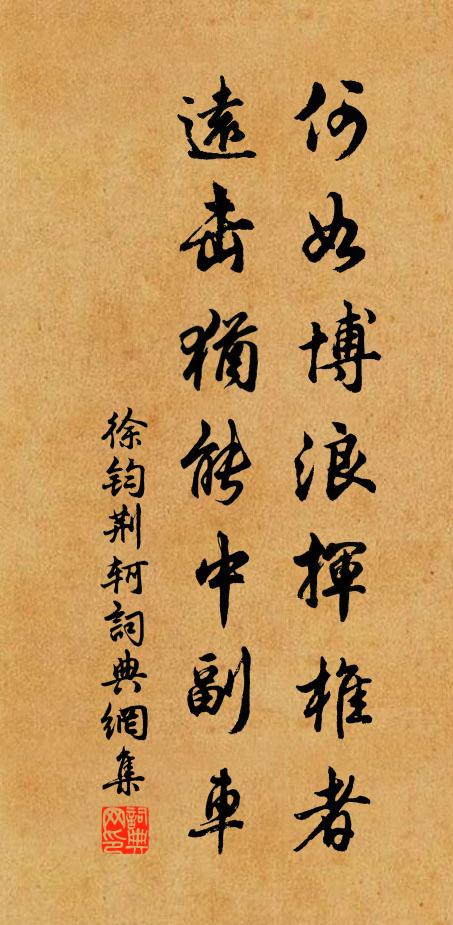 何如博浪揮椎者
遠击猶能中副車
徐鈞荆軻詞典網集
詞典网印